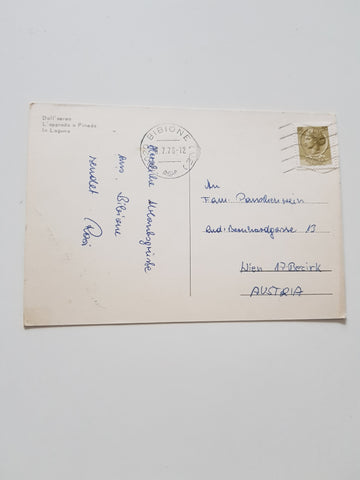 Dall'aereo
L'approdo a Pineda
la Laguna
BIBIONE
7.78-12
Herzliche Urlaubsgrüße
aus Bibione
sendet Rosi
An
Fam.
13
Wien 17 Bezirk
AUSTRIA